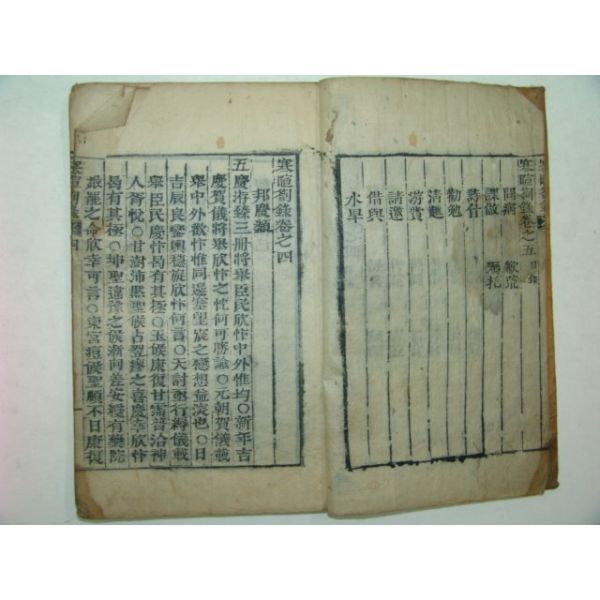 寒暄箚錄卷之五目錄
問病 歉荒
課做 囑托
壽者
勸勉
清趣
游賞
請邀
借與
水旱
寒暄箚錄卷之四
邦慶類
五慶洊臻三冊將擧臣民欣忭中外惟均○新年吉
慶賀儀將擧欣忭之忱何可勝諭○元朝賀儀載
擧中外歡忭惟同邊塞望宸之戀想益深也○日
吉辰良鑾輿穩旋欣忭何言○天討夬行縟儀載
擧臣民慶忭曷有其極○玉候康復甘霈普洽神
人胥悅○甘澍沛然聖候占翌瘳之喜慶幸欣忭
曷有其極○坤聖違豫之候漸向差安綬有藥院
設罷之命欣幸可言○東宮痘候聖願不日康復